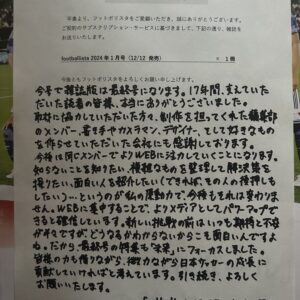 平素より、フットボリスタをご愛顧いただき、誠にありがとうございます。
ご契約のサブスクリプション・サービスに基づきまして、下記の通り、雑誌を
お送りいたします。
footballista 2024年1月号(12/12 発売) × 1冊
今後ともフットボリスタをよろしくお願い申し上げます。
今号で雑誌版は最終号になります。17年間、支えていた
だいた読者の皆様、本当にありがとうございました。
取材に協力していただいた方々、制作を担ってくれた編集部
のメンバー、書き手やカメラマン、デザイナー、そして好きなもの
を作らせていただいた会社にも感謝しております。
今後は同じメンバーでよりWEBに注力していくことになります。
知らないことを知りたい、複雑なものを整理して解決策を
探りたい、面白い人を紹介したい(できれば、その人の後押しも
したい)…というのが私の原動力で、今後もそれは変わりま
せん。WEBに集中することで、よりメディアとしてパワーアップで
きると確信しています。新しい挑戦の前はいつも期待と不安
が半々ですが、どうなるかわからないからこそ面白いんですよ
ね。だから、最終号の特集も「未来」にフォーカスしました。
皆様の力も借りながら、微力ながら日本サッカーの成長に
貢献していければと考えています。引き続き、よろしく
お願いいたします。